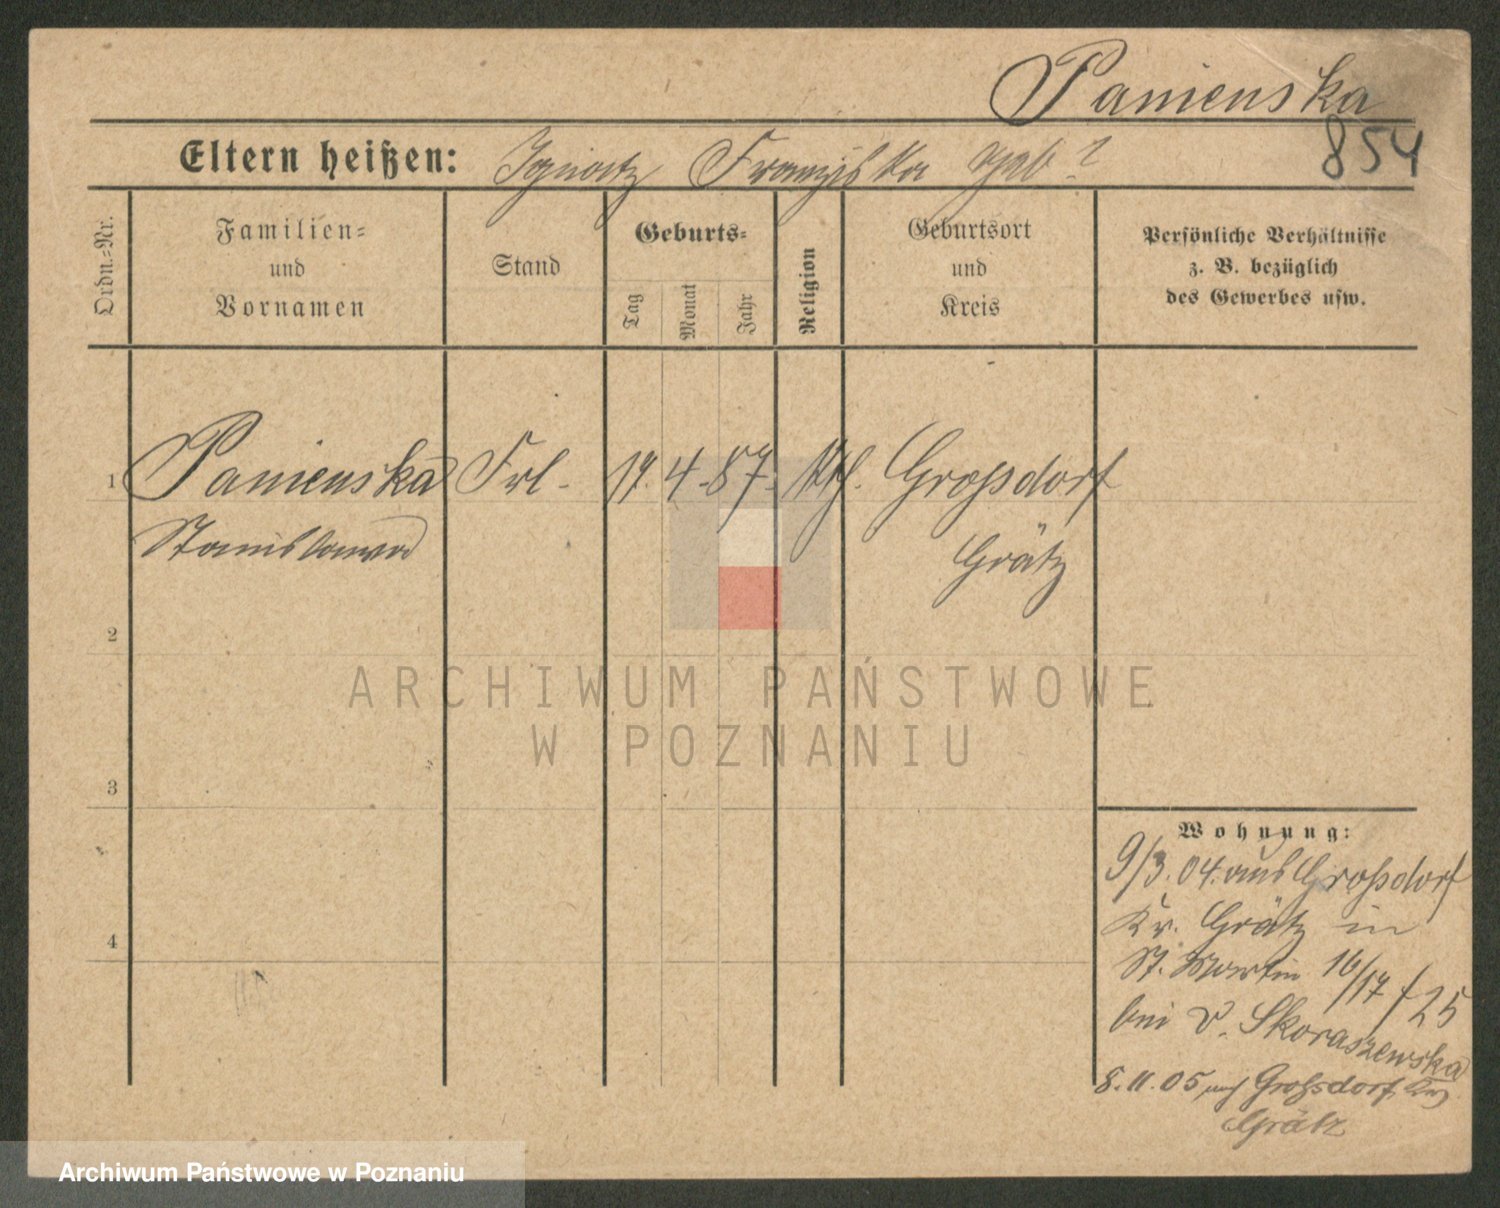 Panienska
854
Eltern heißen: Ignatz Franziska geb ?
Ordn.-Nr.
Familien-
und
Vornamen
Stand
Geburts-
Tag
Monat
Jahr
Religion
Geburtsort
und
Kreis
Persönliche Verhältnisse
z. B. bezüglich
des Gewerbes usw.
1 Panienska Frl. 17. 4. 87. kth. Großdorf
Stanislawa Grätz
2
3
4
ARCHIWUM PAŃSTWOWE
W POZNANIU
Wohnung:
9/3. 04. aus Großdorf
Kr. Grätz in
St. Martin 16/17 f 25
bei v. Skoraszewska
8.11.05 nach Großdorf Kr
Grätz
Archiwum Państwowe w Poznaniu